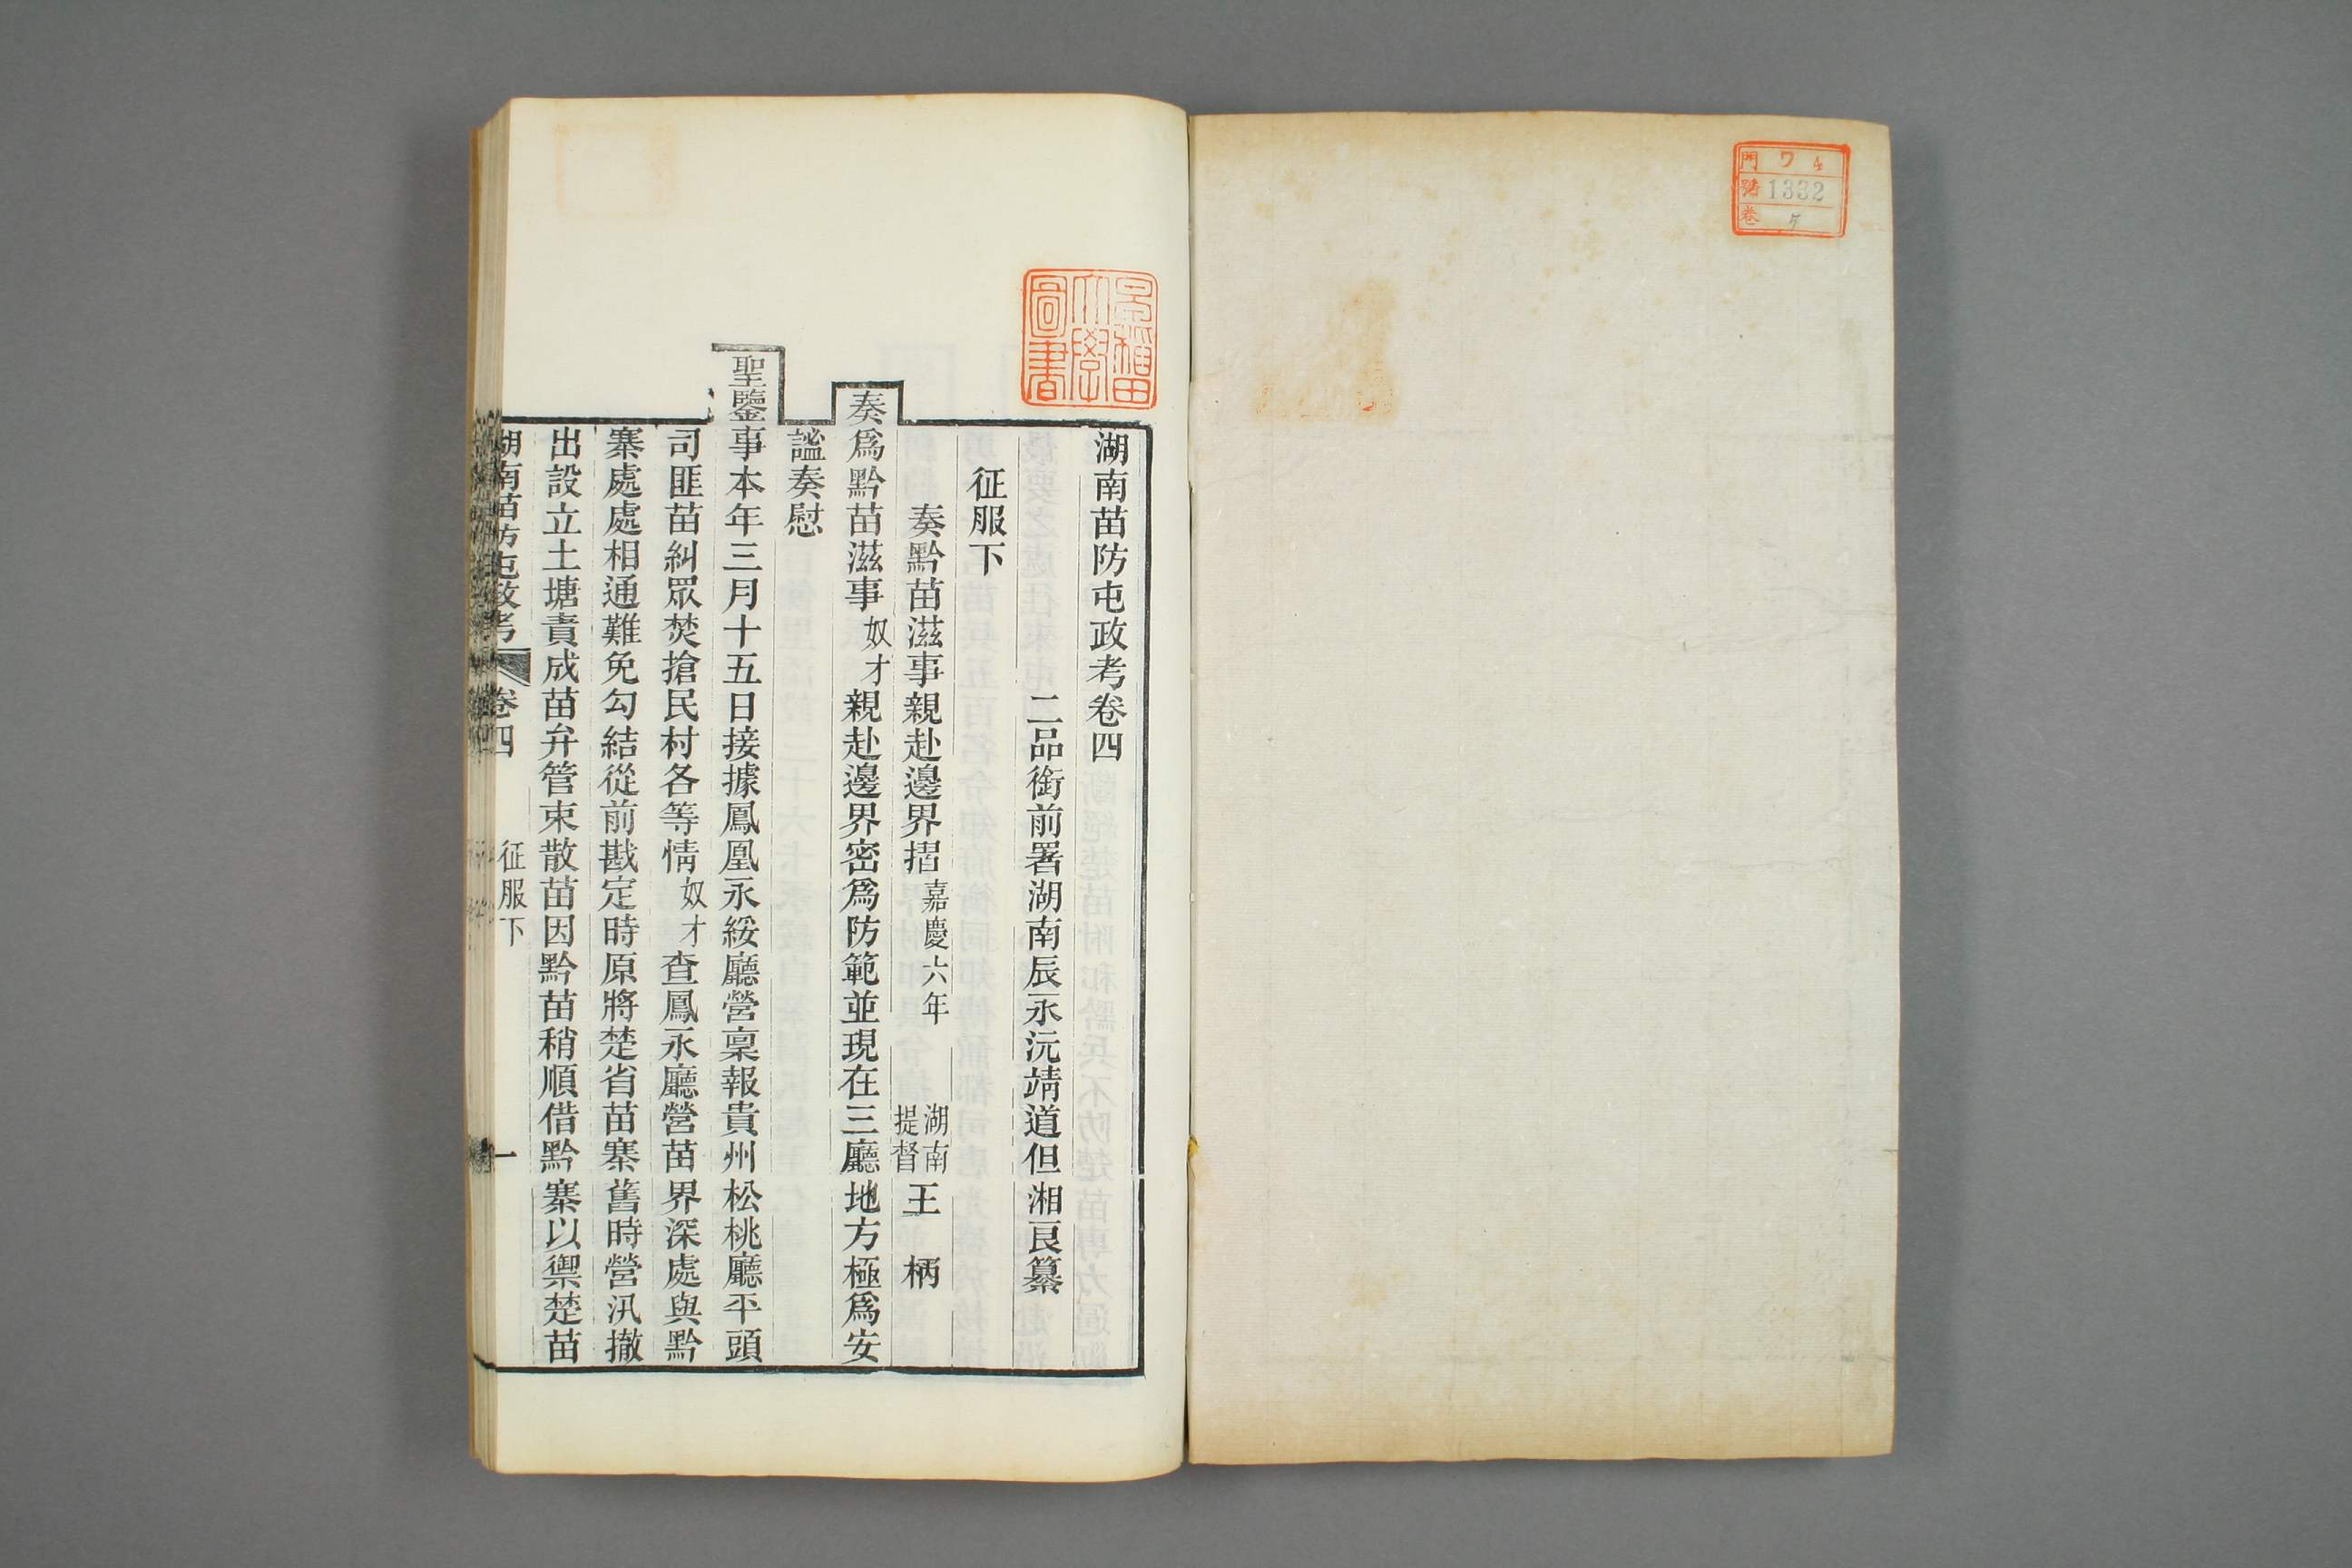 門 ワ 4
號 1332
卷 7
早稲田大學圖書
湖南苗防屯政考卷四
二品銜前署湖南辰永沅靖道但湘良纂
征服下
奏黔苗滋事親赴邊界摺嘉慶六年 湖南提督王 柄
奏爲黔苗滋事奴才親赴邊界密爲防範並現在三廳地方極爲安
謐奏慰
聖鑒事本年三月十五日接據鳳凰永綏廳營稟報貴州松桃廳平頭
司匪苗糾眾焚搶民村各等情奴才查鳳永廳營苗界深處與黔
寨處處相通難免勾結從前戡定時原將楚省苗寨舊時營汛撤
出設立土塘責成苗弁管束散苗因黔苗稍順借黔寨以禦楚苗
湖南苗防屯政考 卷四 征服下 一